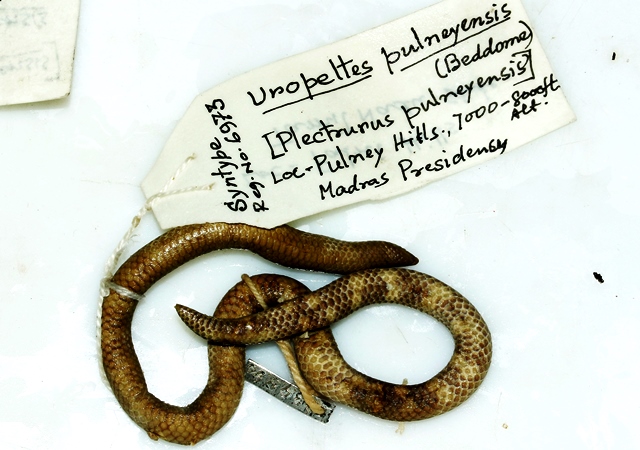 Uropeltes pulneyensis
(Beddome)
[Plectrurus pulneyensis]
Loc-Pulney Hills., 7000-8000ft
Alt.
Madras Presidensy
Syntype
Reg. No. 6973